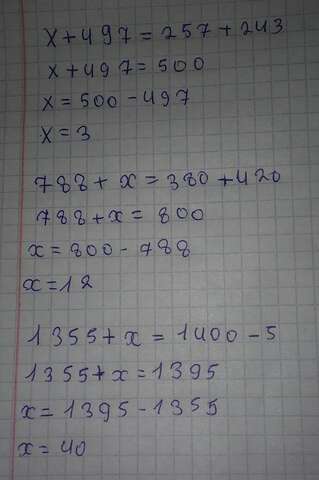 x + 497 = 257 + 243
x + 497 = 500
x = 500 - 497
x = 3
788 + x = 380 + 420
788 + x = 800
x = 800 - 788
x = 12
1355 + x = 1400 - 5
1355 + x = 1395
x = 1395 - 1355
x = 40